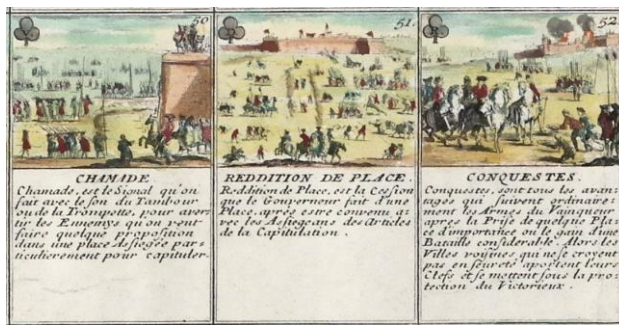 50
CHAMADE.
Chamade, est le Signal qu'on
fait avec le son du Tambour
ou de la Trompette, pour aver=
tir les Ennemys qu'on veut
faire quelque proposition
dans une place Assiegée par=
ticulierement pour capituler.
51.
REDDITION DE PLACE.
Reddition de Place, est la Cession
que le Gouverneur fait d'une
Place, aprés estre convenu a=
vec les Assiegeans des Articles
de la Capitulation.
52
CONQUESTES.
Conquestes, sont tous les avan=
tages qui suivent ordinaire=
ment les Armes du Vainqueur
apres la Prise de quelque Pla=
ce d'importance ou le gain d'une
Bataille considerable. Alors les
Villes voisines qui ne se croyent
pas en seureté apportent leurs
Clefs et se mettent sous la pro=
tection du Victorieux.